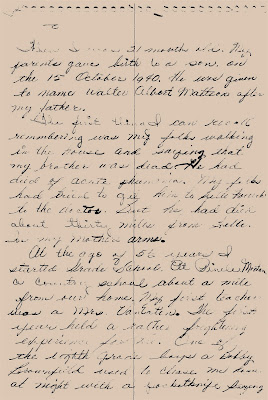 When I was 21 month old. My
parents gave birth to a son. on
the 15 October 1940. He was given
to name Walter Albert Mattson after
my father.
The first thing I can recall
remembering was my folks walking
in the house and saying that
my brother was dead. He had
died of acute phumonia. My folks
had tried to get him to
to the doctor. but He had died
about thirty miles from
in my mothers arms.
At the age of 5½ years I
started Grade School.
a country school about a mile
from our home. My first teacher
was a Mrs. The first
year held a rather frightening
experience for me. One of
the eighth grade boys a Bobby
Brownfield used to chase me home
at night with a saying